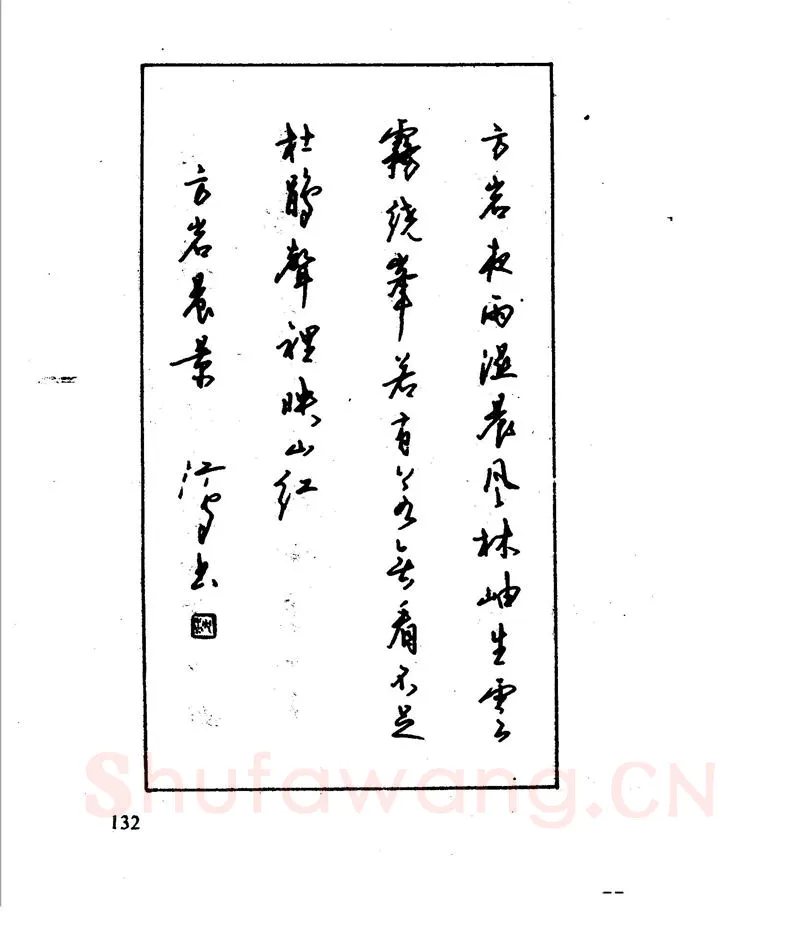 方岩夜雨湿晨风林岫生雲
霧绕峯若有若无看不足
杜鹃聲裡映山红
方岩晨景 江 书
Shufawang.CN
132